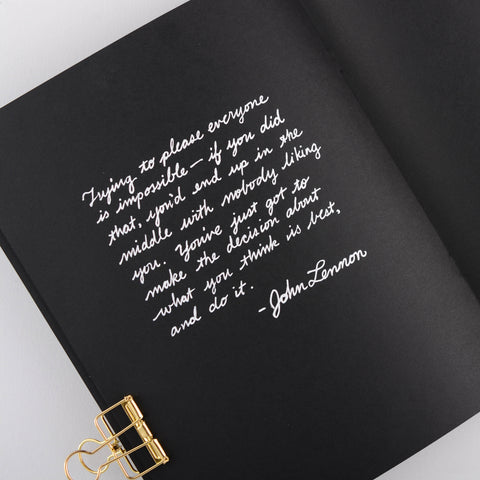 Trying to please everyone
is impossible — if you did
that, you'd end up in the
middle with nobody liking
you. You've just got to
make the decision about
what you think is best,
and do it.
- John Lennon